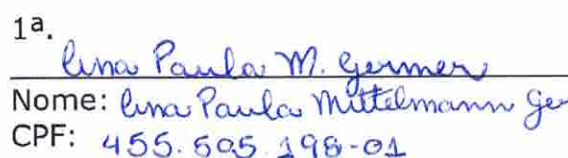 1ª.
Ana Paula M. Germer
Nome: Ana Paula Mittelmann Ge
CPF: 455.505.198-01